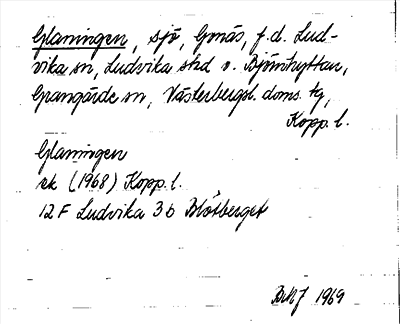 Glaningen, sjö, Gonäs, f.d. Lud-
vika sn, Ludvika stad o. Björnhyttan,
Grangärde sn, Västerbergsl. doms. tg,
Kopp. l.
Glaningen
ek (1968) Kopp. l.
12 F Ludvika 3 b Blötberget
1969